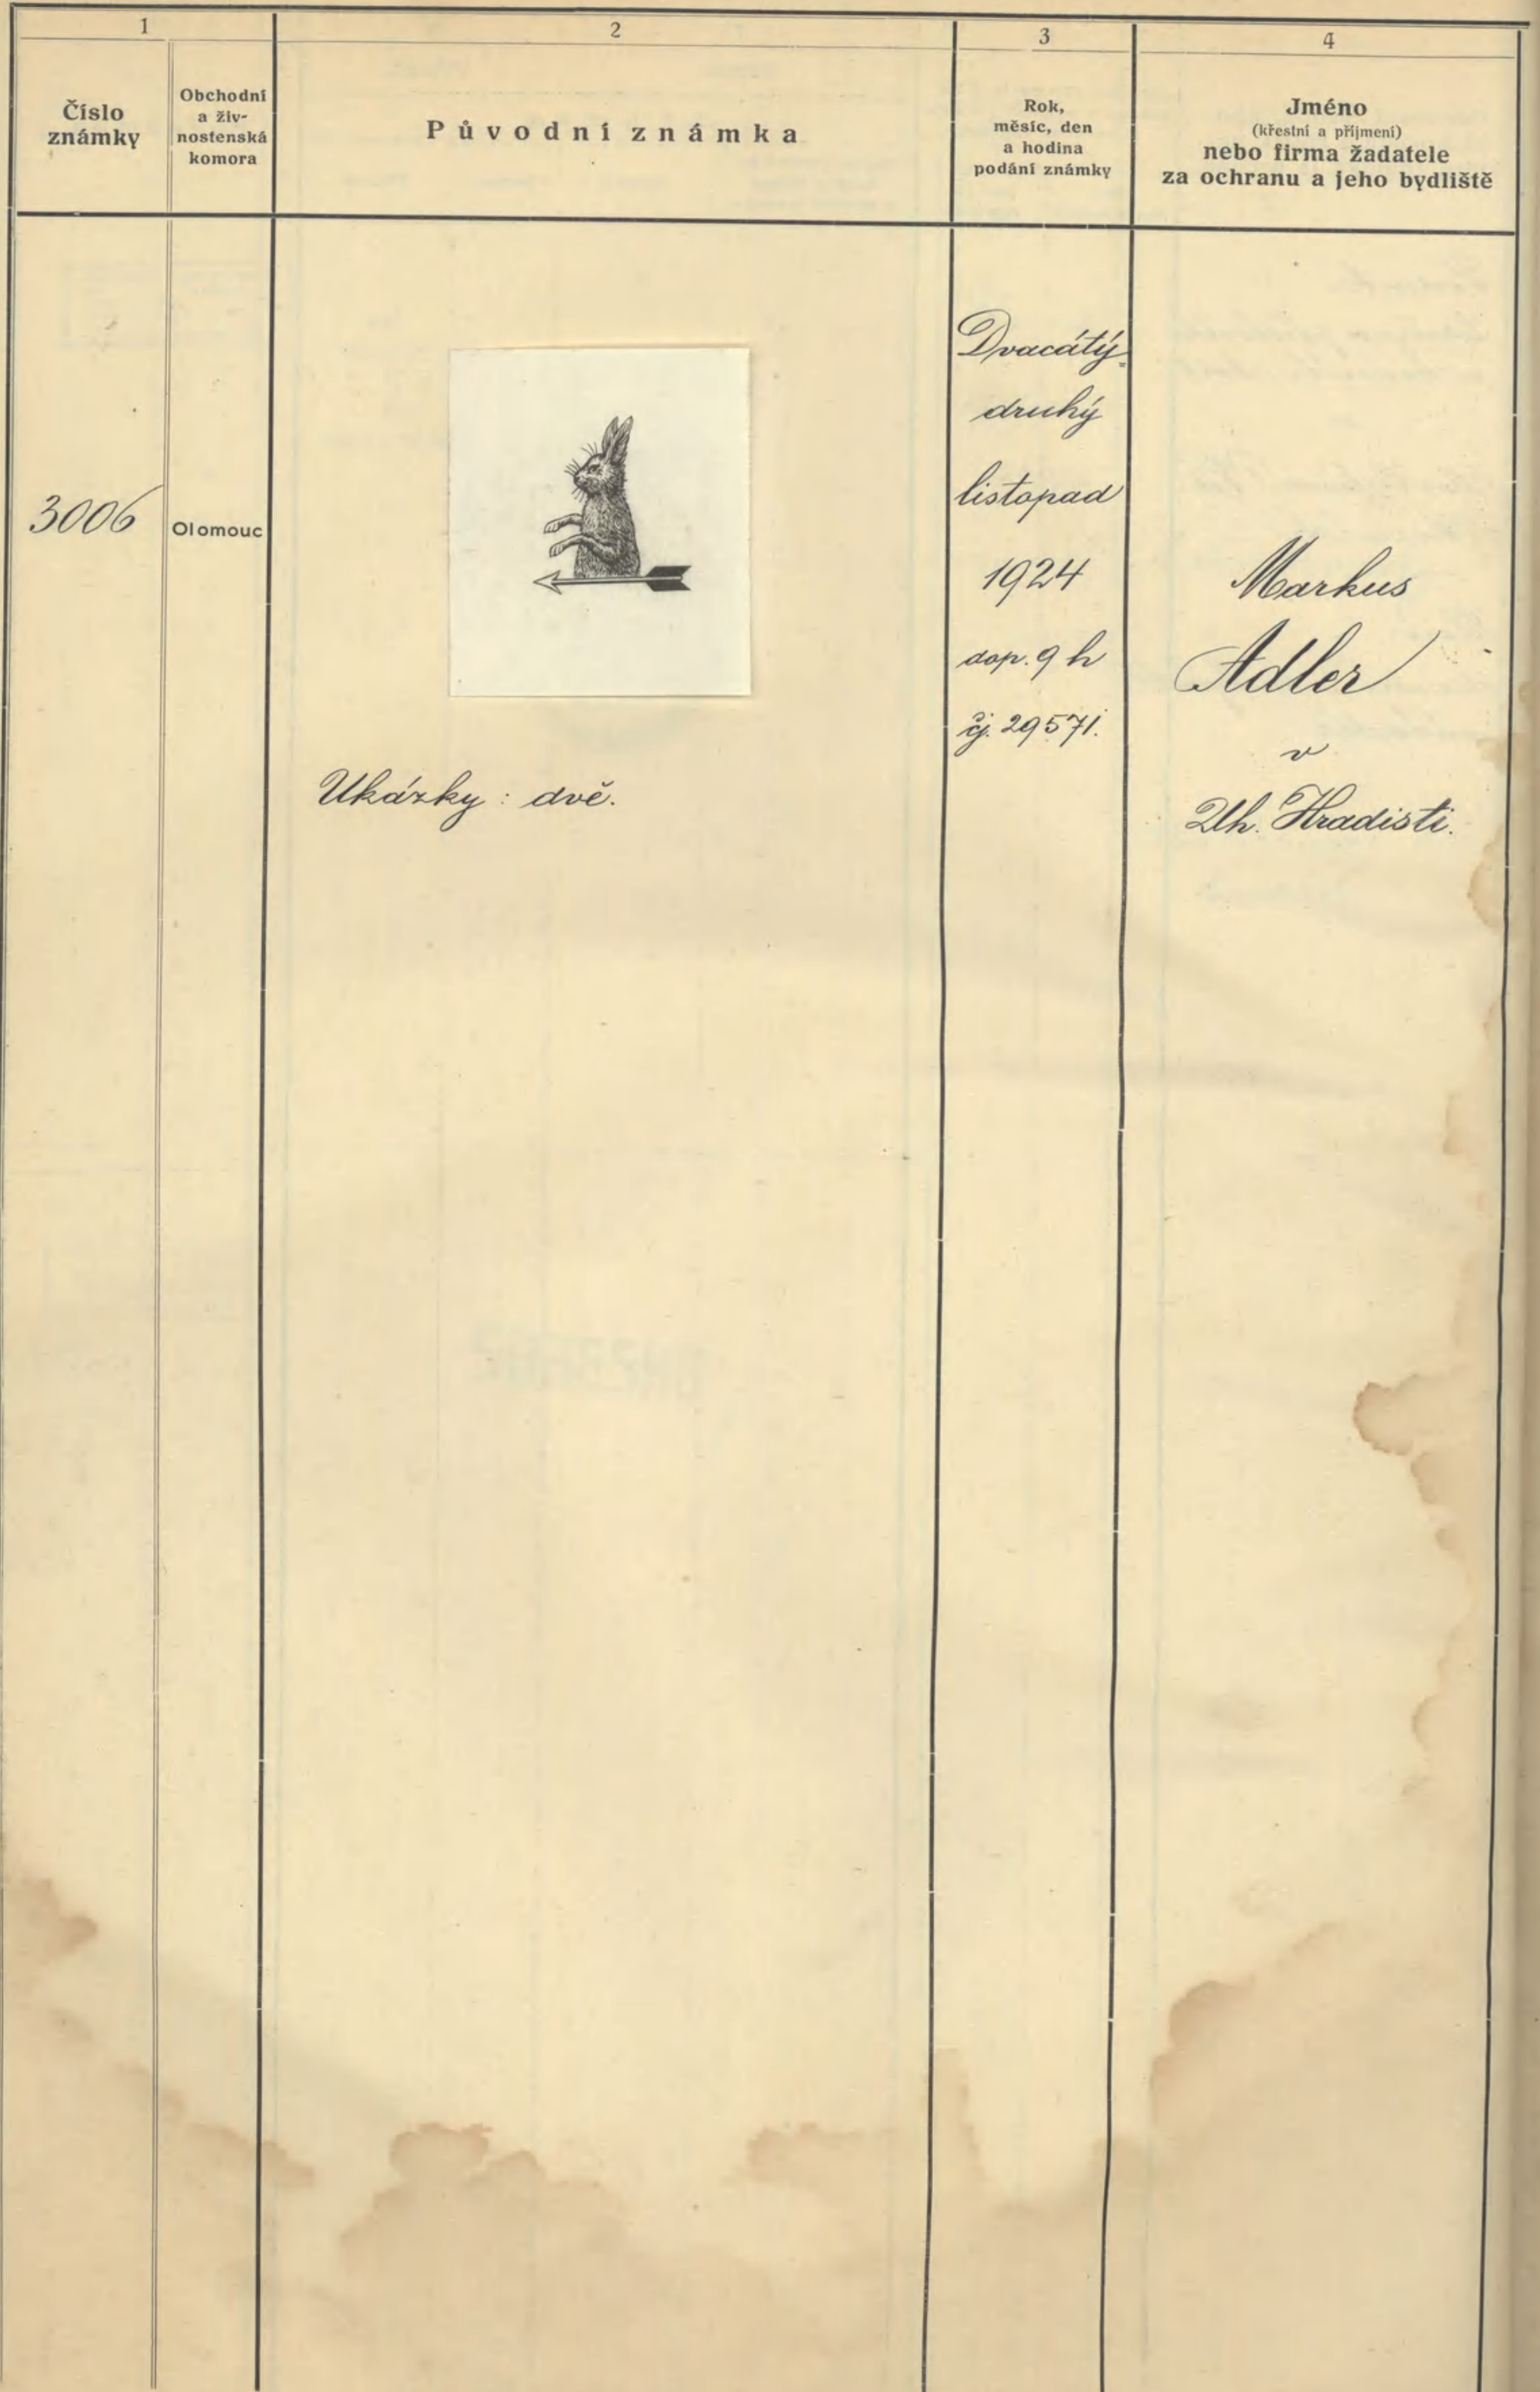 1
Číslo
známky
Obchodní
a živ-
nostenská
komora
2
Původní známka
3
Rok,
měsíc, den
a hodina
podání známky
4
Jméno
(křestní a příjmení)
nebo firma žadatele
za ochranu a jeho bydliště
3006
Olomouc
Ukázky: dvě.
Dvacátý
druhý
listopad
1924
dop. 9 h
čj. 29571.
Markus
Adler
v
Uh. Hradisti.